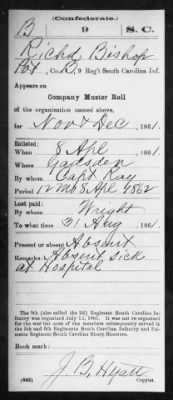 (Confederate.)
B 9 S. C.
Richd Bishop
Pvt, Co. B, 9 Reg't South Carolina Inf.
Appears on
Company Muster Roll
of the organization named above,
for Nov & Dec, 1861.
Enlisted:
When 8 Apl, 1861.
Where Gadsden
By whom Capt Kay
Period 12 Mo 8 Apl 1862
Last paid:
By whom Wright
To what time 31 Aug, 1861.
Present or absent Absent
Remarks: Absent, Sick
at Hospital
The 9th (also called the 2d) Regiment South Carolina Infantry was organized July 12, 1861. It was not re-organized for the war but most of the members subsequently served in the 5th and 6th Regiments South Carolina Infantry and Palmetto Regiment South Carolina Sharp Shooters.
Book mark:
J. B. Hyatt
(642) Copyist.